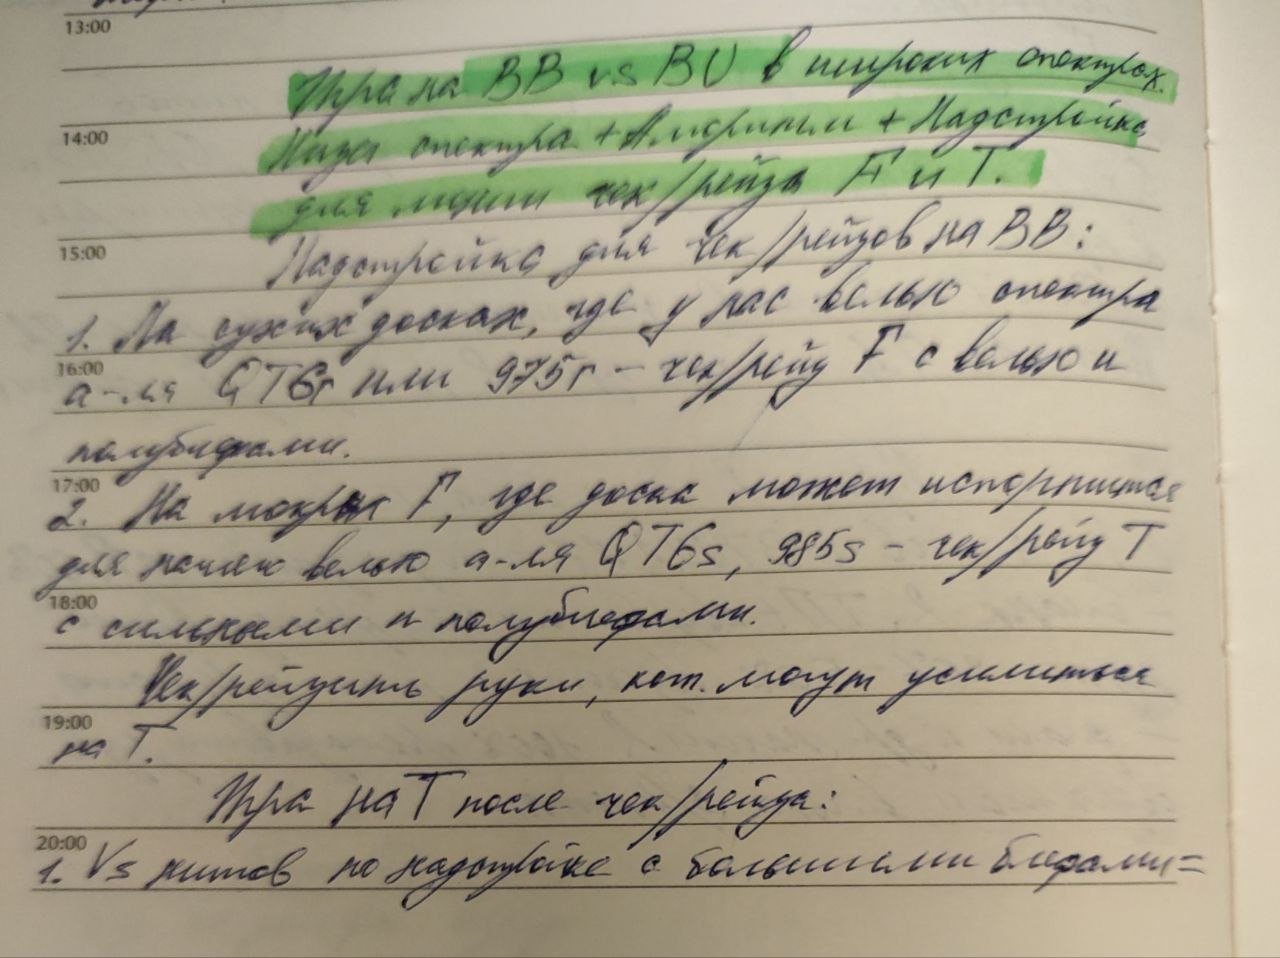 13:00
Игра на BB vs BU в широких спектрах.
14:00
спектра + Алгоритм + Надстройка
для линии чек/рейза F и T.
15:00
Надстройка для чек/рейзов на BB:
1. На сухих досках, где у нас велью спектра
16:00
а-ля QT6r или 975r - чек/рейз F с велью и
полублефами.
17:00
2. На мокрых F, где доска может испортиться
для нашего велью а-ля QT6s, 985s - чек/рейз T
18:00
с сильными и полублефами.
Чек/рейзить руки, кот. могут усилиться
19:00
на T.
Игра на T после чек/рейза:
20:00
1. Vs нитов по надстройке с большими блефами=